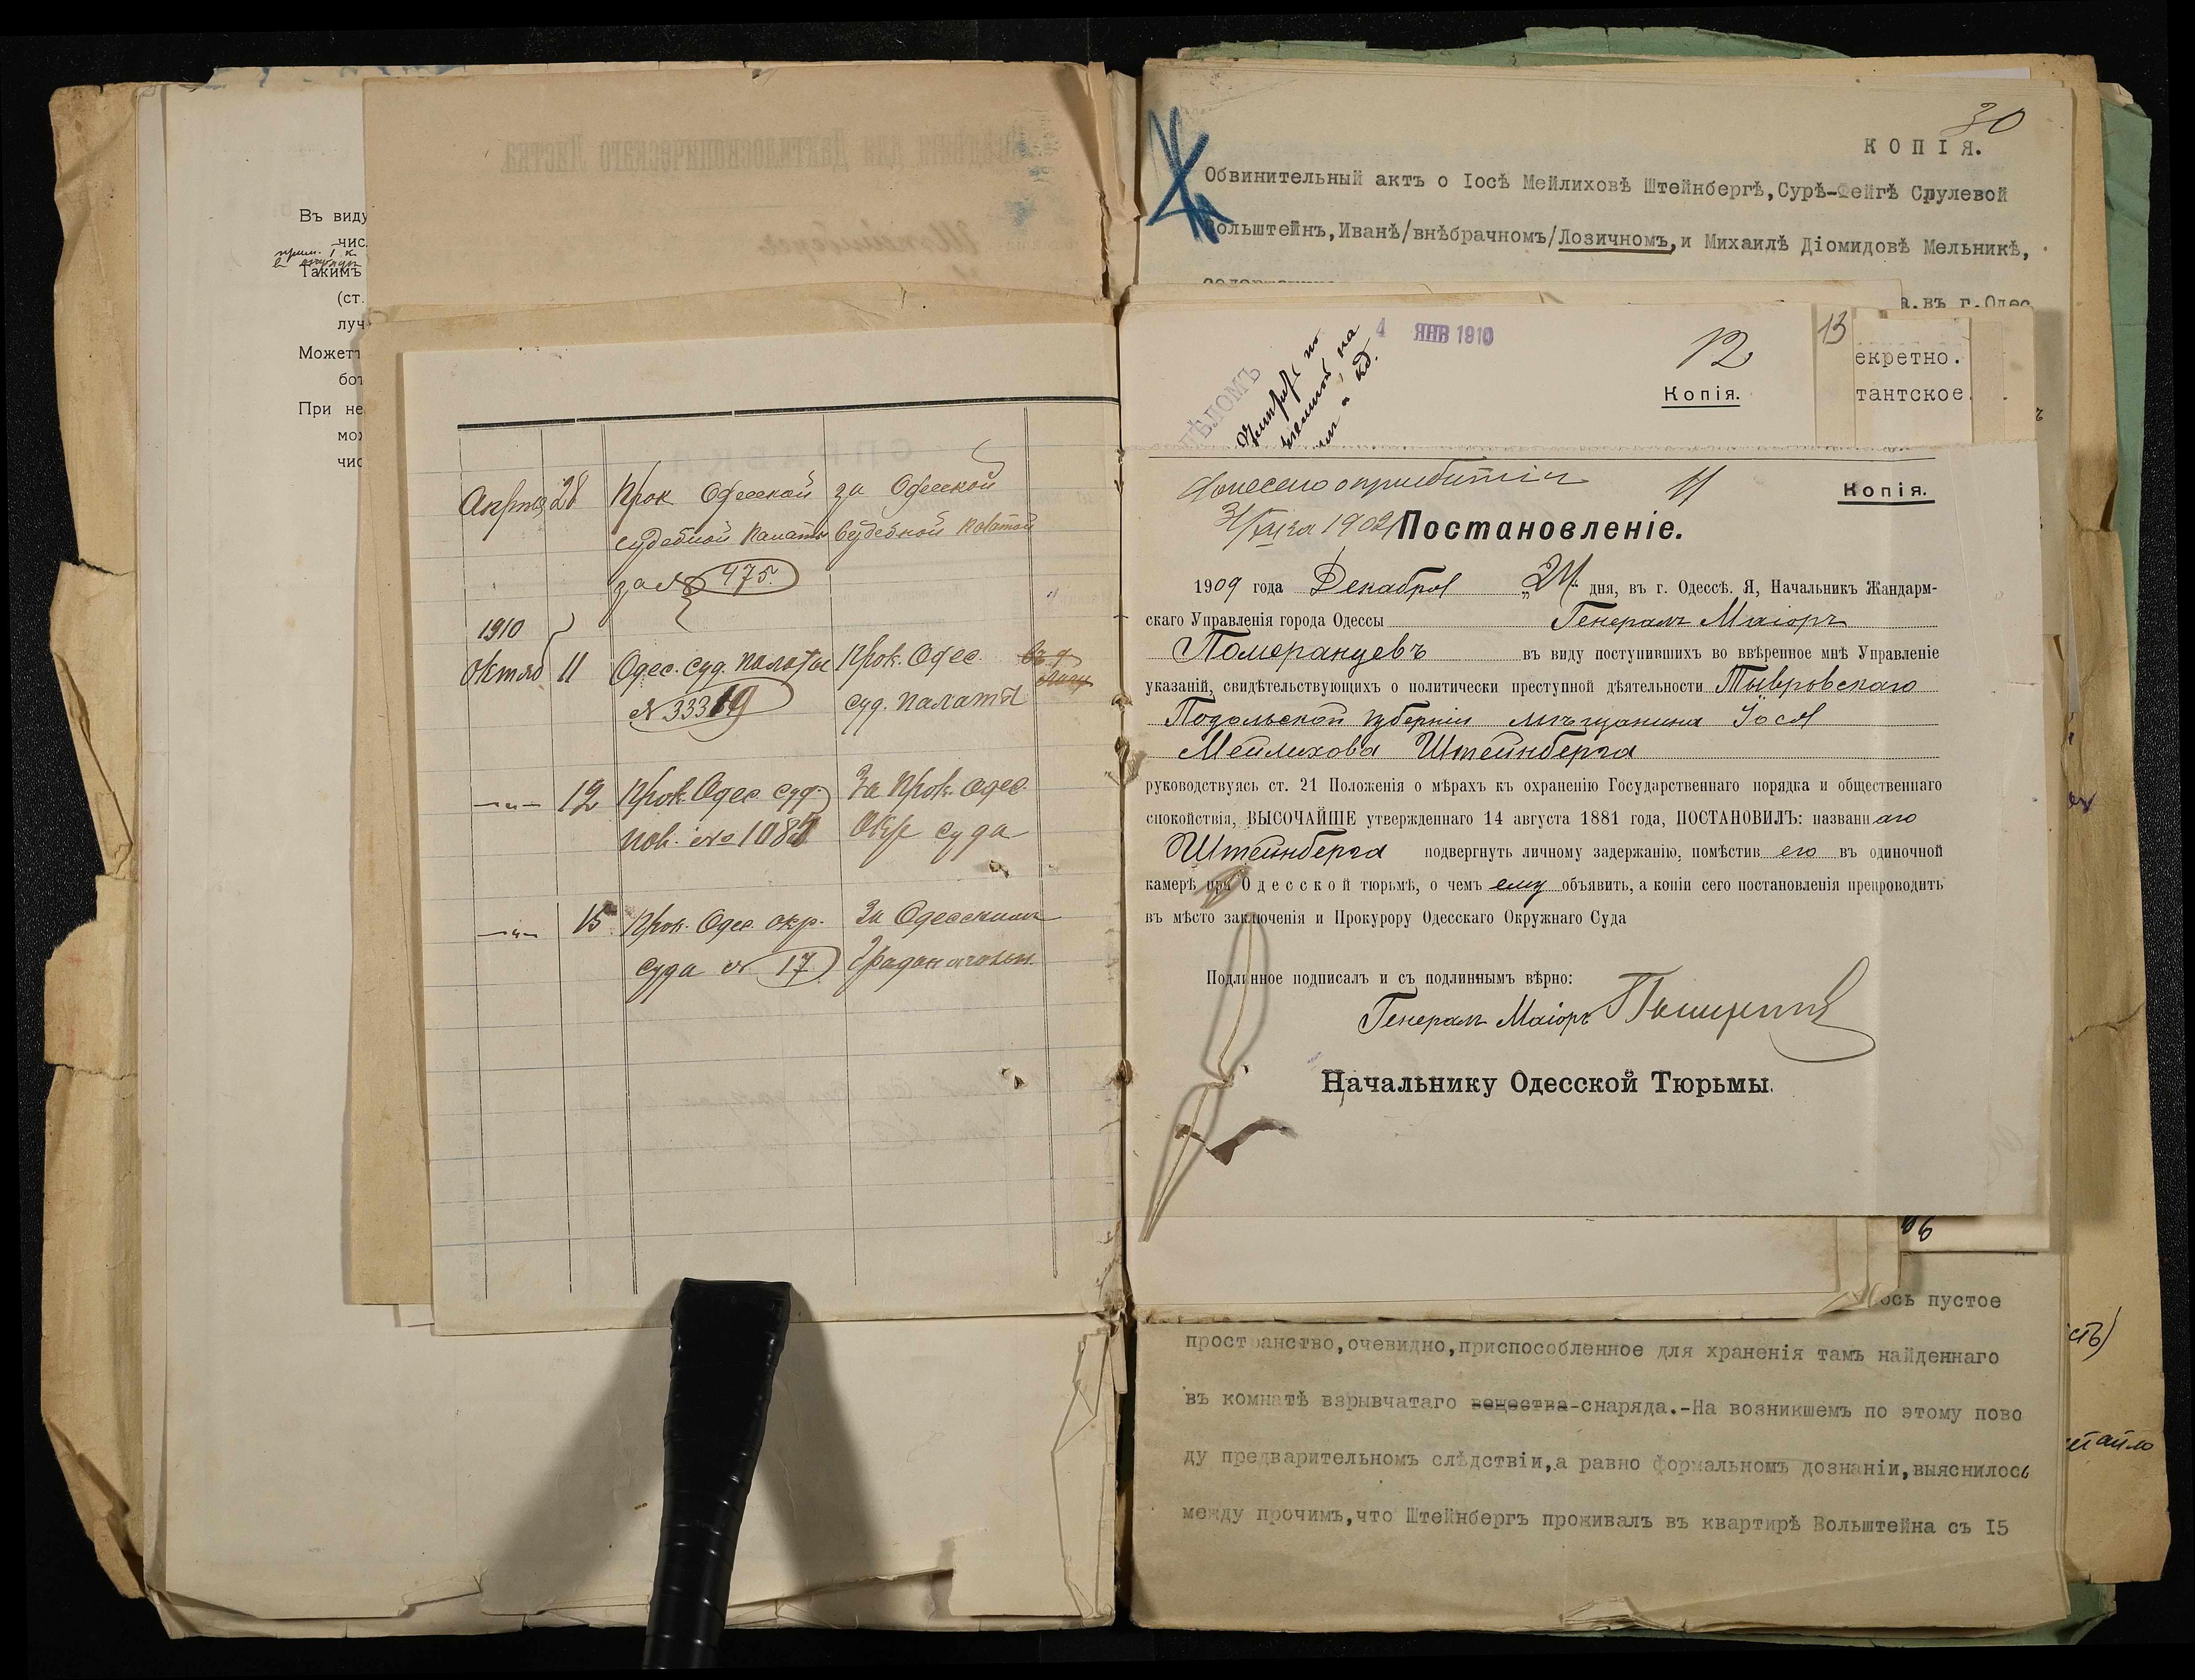 Въ виду
чис
Такимъ
(ст.
луч
Может
бот
При не
мо
чис
Апрѣля 28 Прок Одесской за Одесской
судебной Палаты судебной палатой
за № 475.
1910
Октяб 11 Одес. суд. палаты Прок. Одес.
№ 33319 суд. палаты
—„— 12 Прок. Одес. суд. За Прок. Одес.
пов. № 1087 Окр суда
—„— 15 Прок. Одес. окр. За Одесским
суда № 17 Градоначальн.
30
КОПІЯ.
Обвинительный актъ о Іосѣ Мейлиховѣ Штейнбергѣ,Сурѣ-Фейгѣ Срулевой
Вольштейнъ,Иванѣ/внѣбрачномъ/Лозичномъ,и Михаилѣ Діомидовѣ Мельникѣ,
а.въ г.Одес
4 ЯНВ 1910
12
Копія.
13
екретно.
тантское.
Донесено о прибытіи
11
Копія.
Постановленіе.
1909 года Декабря „24" дня, въ г. Одессѣ. Я, Начальникъ Жандарм-
скаго Управленія города Одессы Генералъ Маіоръ
Померанцевъ въ виду поступившихъ во ввѣренное мнѣ Управленіе
указаній, свидѣтельствующихъ о политически преступной дѣятельности Тывровскаго
Подольской губерніи мѣщанина Іося
Мейлихова Штейнберга
руководствуясь ст. 21 Положенія о мѣрахъ къ охраненію Государственнаго порядка и общественнаго
спокойствія, ВЫСОЧАЙШЕ утвержденнаго 14 августа 1881 года, ПОСТАНОВИЛЪ: названнаго
Штейнберга подвергнуть личному задержанію, помѣстив его въ одиночной
камерѣ при Одесской тюрьмѣ, о чемъ ему объявить, а копіи сего постановленія препроводить
въ мѣсто заключенія и Прокурору Одесскаго Окружнаго Суда
Подлинное подписалъ и съ подлиннымъ вѣрно:
Генералъ Маіоръ
Начальнику Одесской Тюрьмы.
ось пустое
пространство,очевидно,приспособленное для храненія тамъ найденнаго
въ комнатѣ взрывчатаго вещества-снаряда.-На возникшемъ по этому пово
ду предварительномъ слѣдствіи,а равно формальномъ дознаніи,выяснилось
между прочимъ,что Штейнбергъ проживалъ въ квартирѣ Вольштейна съ 15